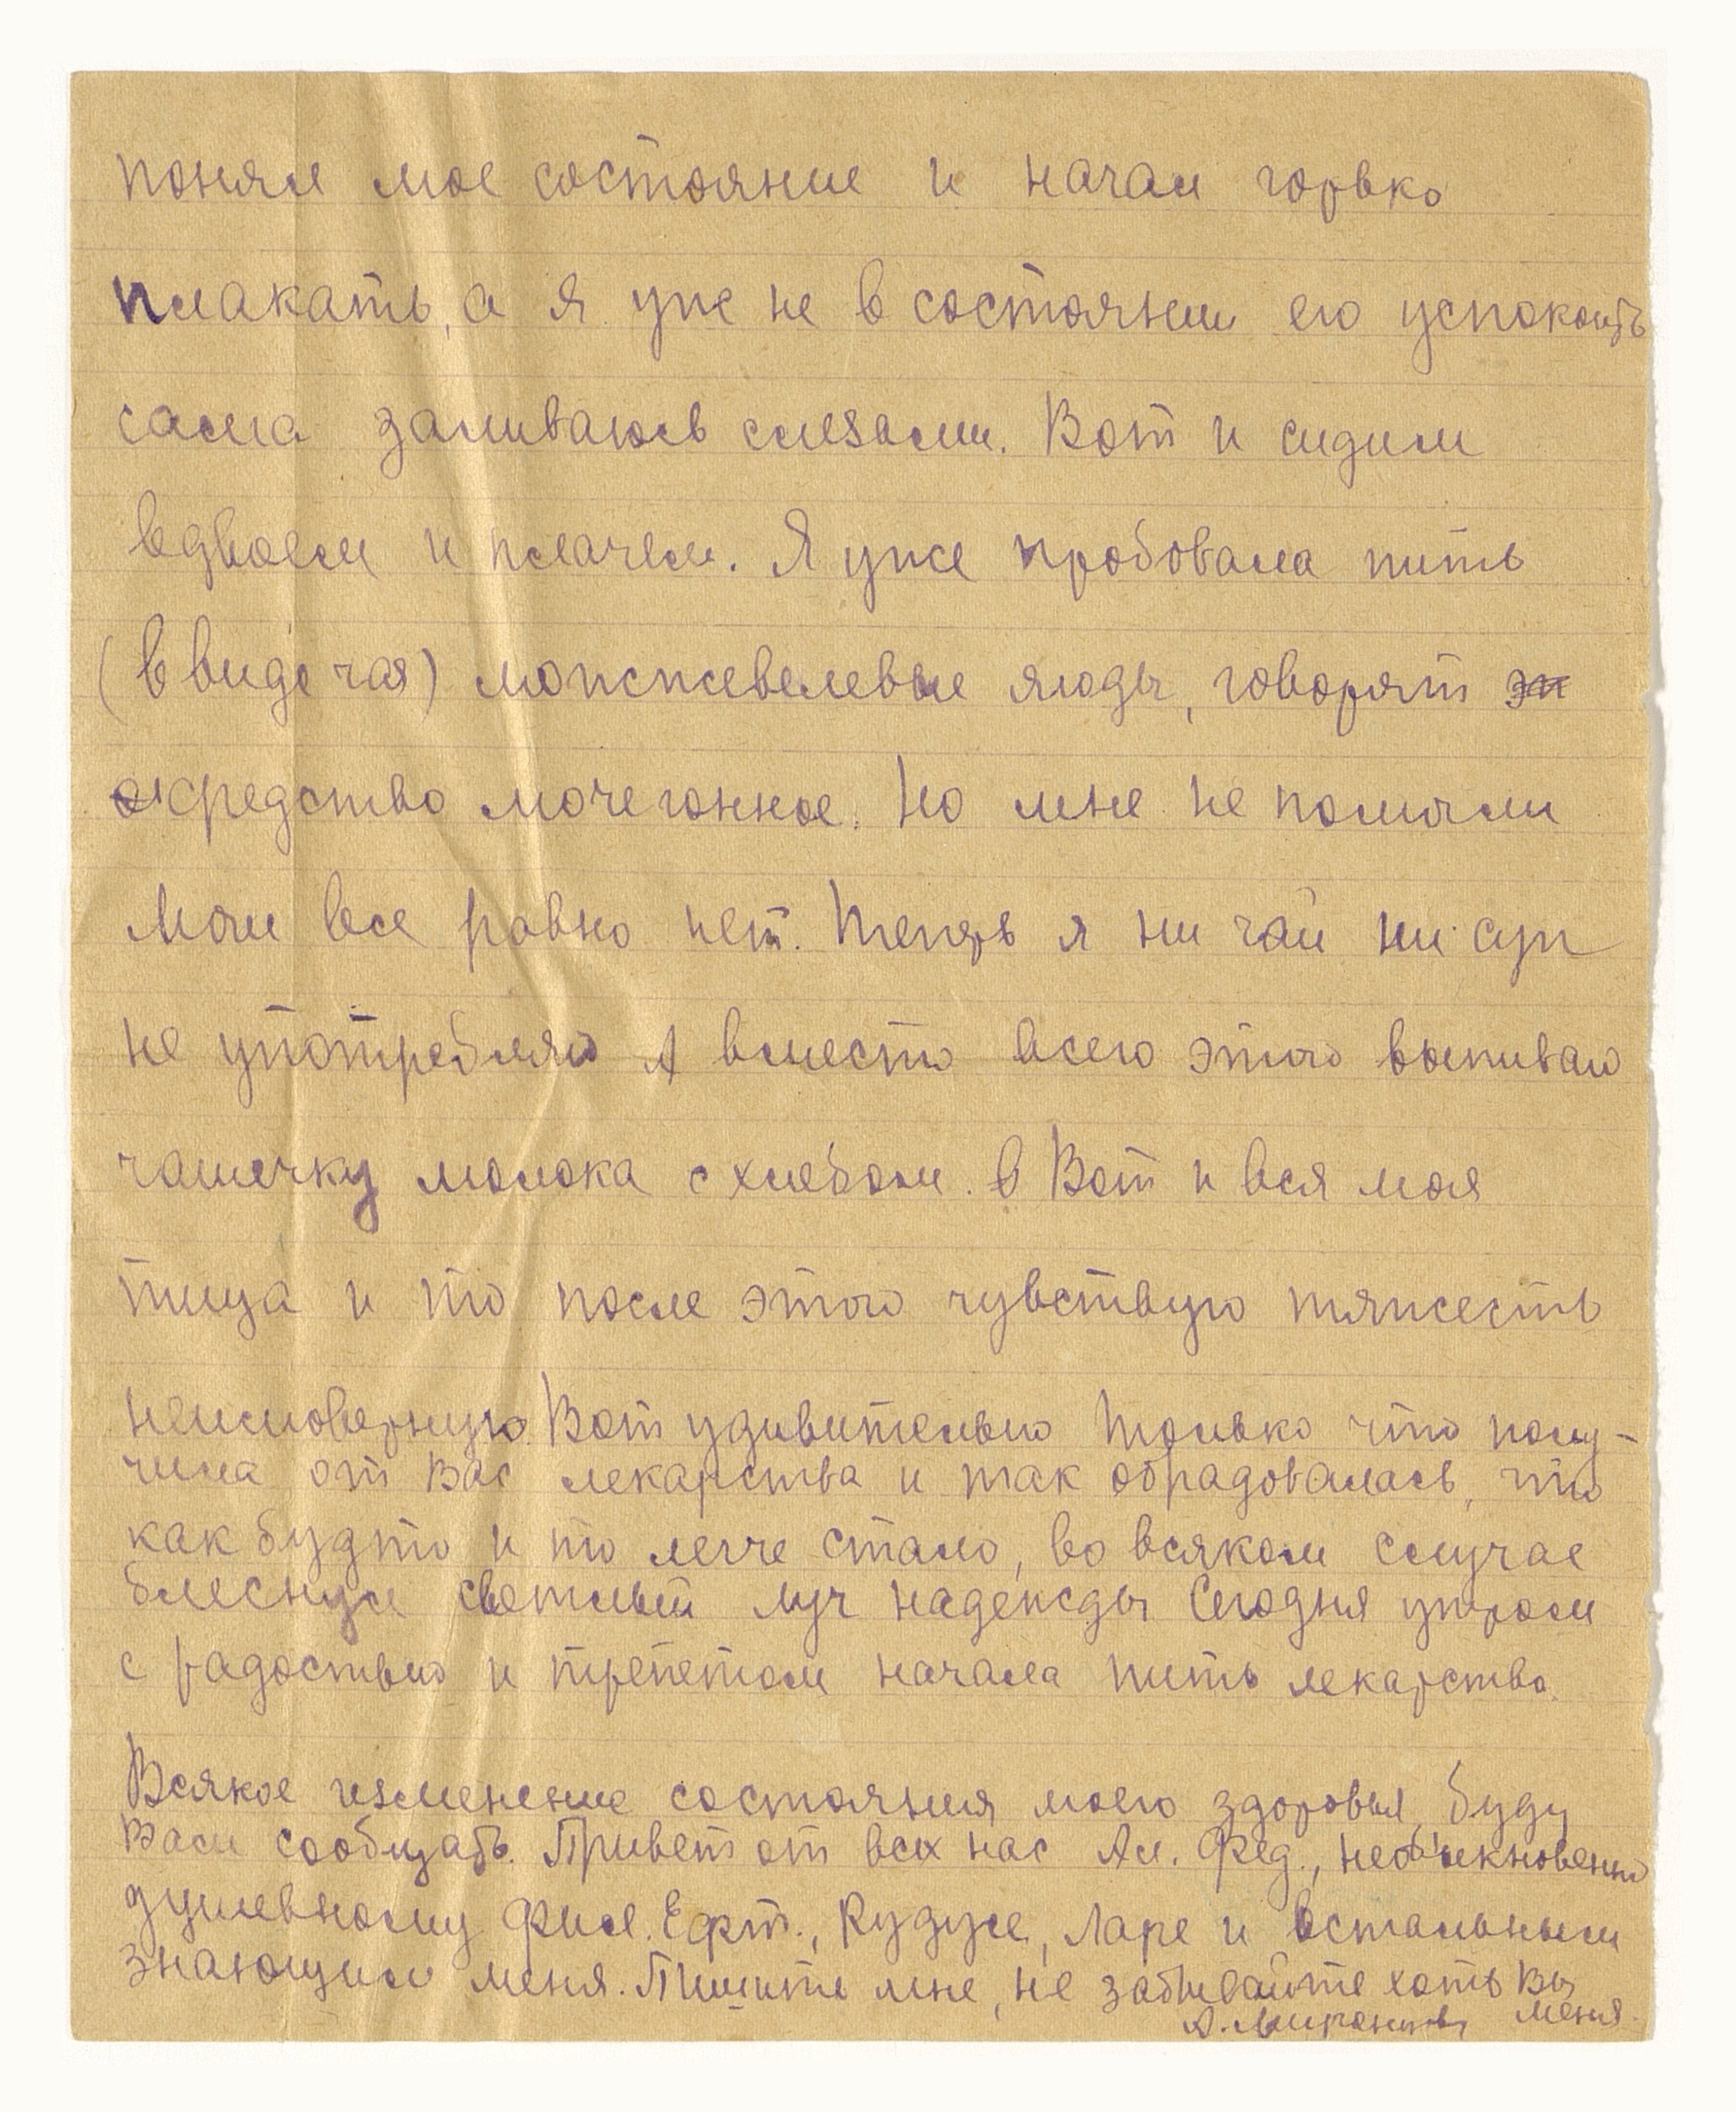 понял мое состояние и начал горько
плакать, а я уже не в состоянии его успокоить
сама заливаюсь слезами. Вот и сидим
вдвоем и плачем. Я уже пробовала пить
(в виде чая) можжевелевые ягоды, говорят
средство мочегонное. Но мне не помогли
Мочи все равно нет. Теперь я ни чай ни суп
не употребляю А вместо всего этого выпиваю
чашечку молока с хлебом. Вот и вся моя
пища и то после этого чувствую тяжесть
неимоверную. Вот удивительно только что полу-
чила от Вас лекарства и так обрадовалась, что
как будто и то легче стало, во всяком случае
блеснул светлый луч надежды Сегодня утром
с радостью и трепетом начала пить лекарство.
Всякое изменение состояния моего здоровья, буду
Вам сообщать. Привет от всех нас Ал. Фед., необыкновенно
душевному Фил. Ефт., Кудусе, Ларе и остальным
знающим меня. Пишите мне, не забывайте хоть Вы
меня.